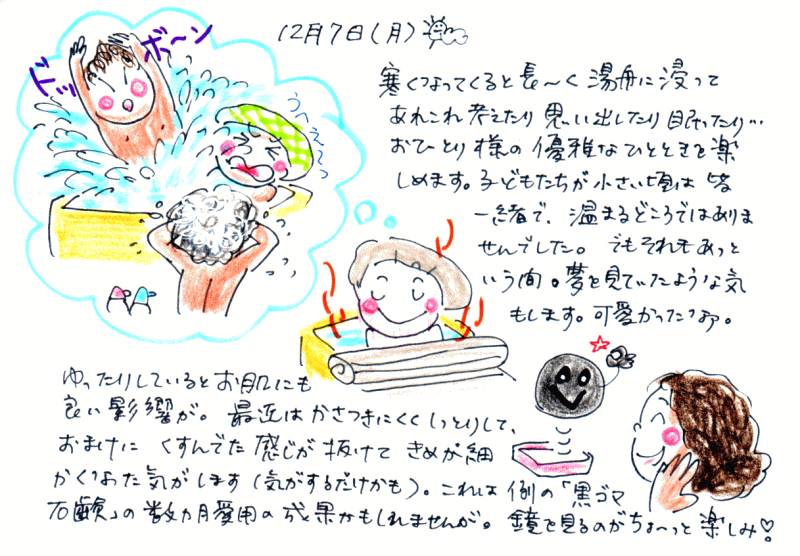 12月7日(月)
ドッボ〜ン
うへぇ〜っ
寒くなってくると長〜く湯舟に浸って
あれこれ考えたり思い出したり眠ったり…
おひとり様の優雅なひとときを楽
しめます。子どもたちが小さい頃は皆
一緒で、温まるどころではありま
せんでした。でもそれもあっと
いう間。夢を見ていたような気
もします。可愛かったなぁ。
ゆったりしているとお肌にも
良い影響が。最近はかさつきにくくしっとりして、
おまけにくすんでた感じが抜けてきめが細
かくなった気がします(気がするだけかも)。これは例の「黒ゴマ
石鹸」の数カ月愛用の成果かもしれませんが。鏡を見るのがちょ〜っと楽しみ♡